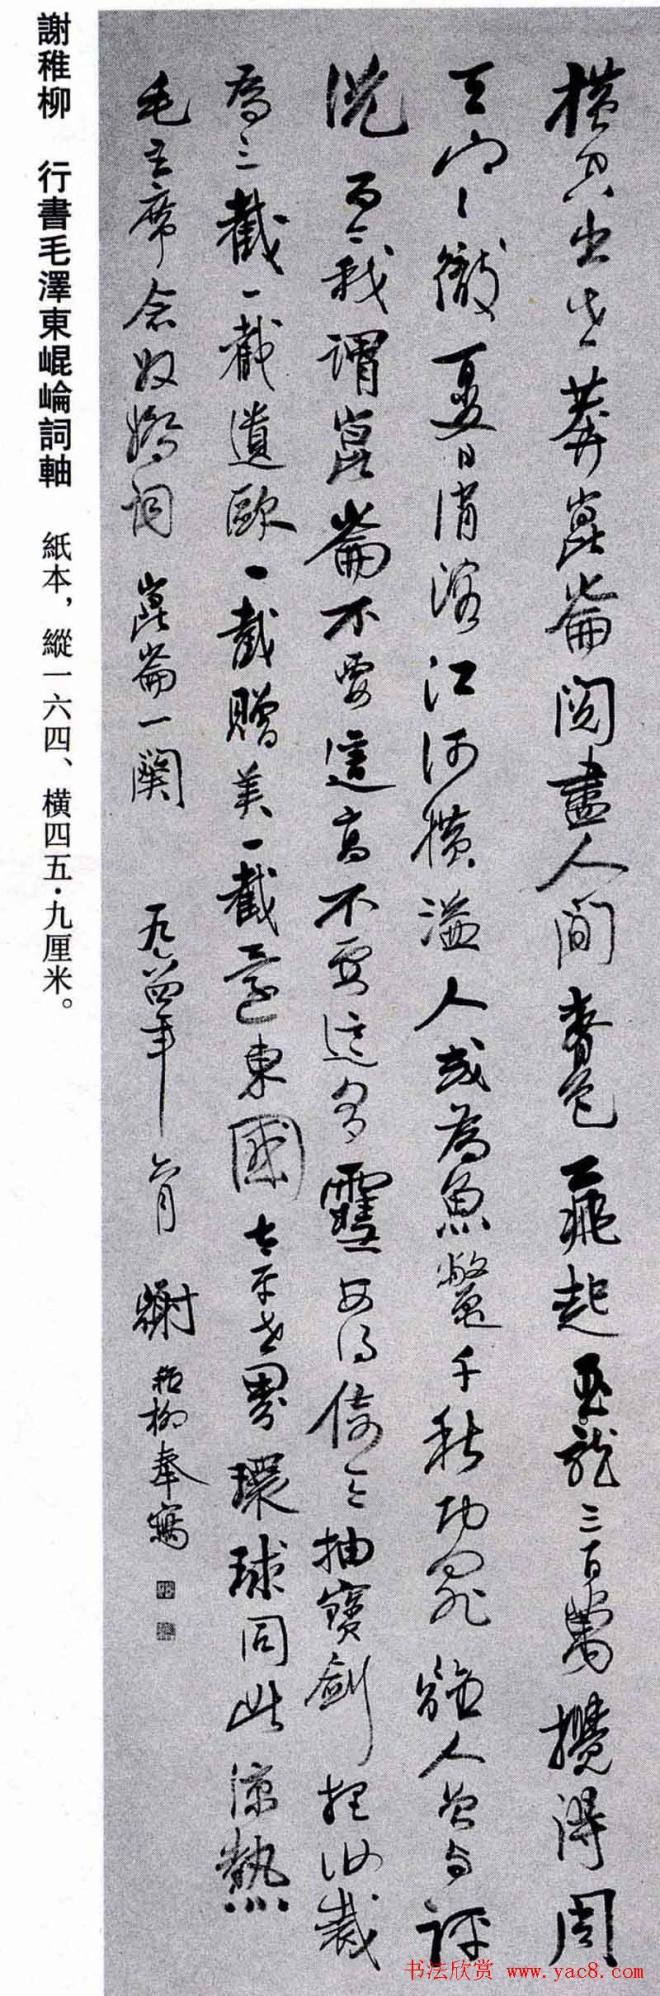 橫空出世莽崑崙閱盡人間春色飛起玉龍三百萬攪得周
天寒徹夏日消溶江河橫溢人或為魚鱉千秋功罪誰人曾與評
說而今我謂崑崙不要這高不要這多雪安得倚天抽寶劍把汝裁
為三截一截遺歐一截贈美一截還東國太平世界環球同此涼熱
毛主席念奴嬌詞崑崙一闋 九四年月 謝稚柳奉寫
謝稚柳 行書毛澤東崐崘詞軸 紙本，縱一六四、橫四五·九厘米。
书法欣赏 www.yac8.com